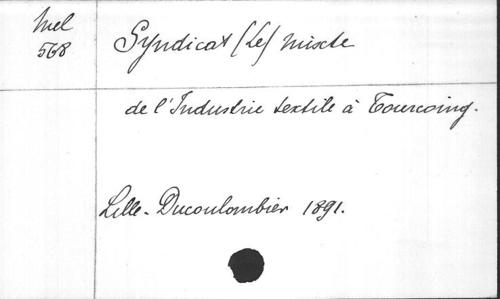 Mel
568
Syndicat (Le) mixte
de l'Industrie textile à Tourcoing.
Lille. Ducoulombier 1891.